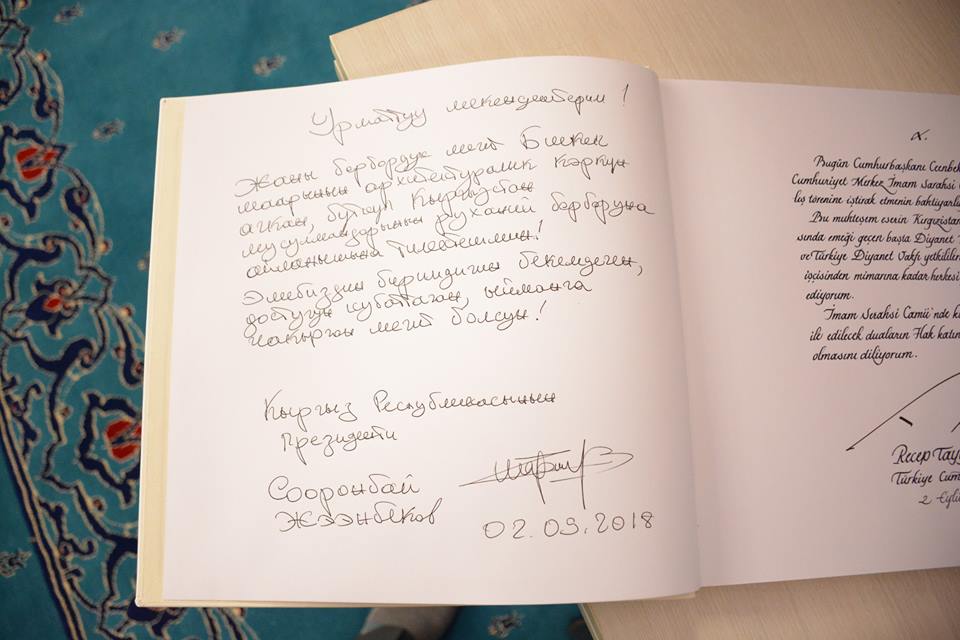 Урматтуу мекендештерим!
Жаңы борбордук мечит Бишкек
шаарынын архитектуралык көркүн
ачкан, бүткүл Кыргызстан
мусулмандарынын руханий борборуна
айланышына тилектешмин!
Элибиздин биримдигин бекемдеген,
достугун кубаттаган, ыйманга
чакырган мечит болсун!
Кыргыз Республикасынын
Президенти
Сооронбай
Жээнбеков
02.09.2018
Bugün Cumhurbaşkanı Ceenbek
Cumhuriyet Merkez İmam Serahsi C
lış törenine iştirak etmenin bahtiyarlığ
Bu muhteşem eserin Kırgızistan
sında emeği geçen başta Diyanet
ve Türkiye Diyanet Vakfı yetkilileri
işçisinden mimarına kadar herkesi
ediyorum.
İmam Serahsi Camii'nde k
ile edilecek duaların Hak katın
olmasını diliyorum.
Recep Tayy
Türkiye Cum
2 Eylü